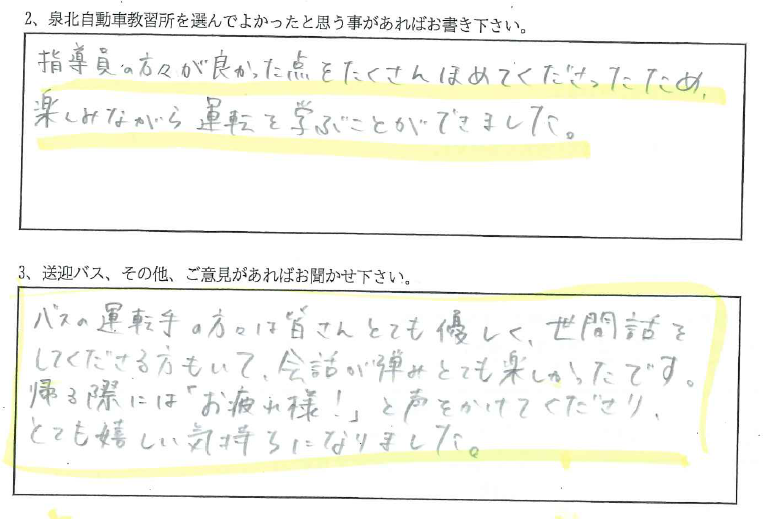 2、泉北自動車教習所を選んでよかったと思う事があればお書き下さい。
指導員の方々が良かった点をたくさんほめてくださったため、
楽しみながら運転を学ぶことができました。
3、送迎バス、その他、ご意見があればお聞かせ下さい。
バスの運転手の方々は皆さんとても優しく、世間話を
してくださる方もいて、会話が弾みとても楽しかったです。
帰る際には「お疲れ様!」と声をかけてくださり、
とても嬉しい気持ちになりました。